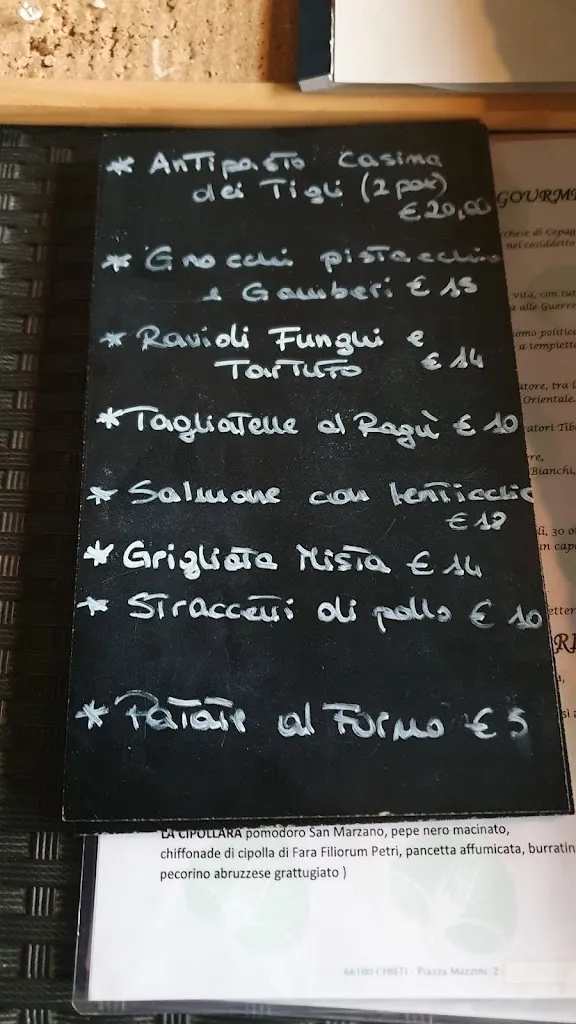 * Antipasto Casina
dei Tigli (2 per)
€ 20,00
* Gnocchi pistacchio
e Gamberi € 15
* Ravioli Funghi e
Tartufo € 14
* Tagliatelle al Ragù € 10
* Salmone con lenticchie
€ 12
* Grigliata Mista € 14
* Straccetti di pollo € 10
* Patate al Forno € 5
GOURM
chese di Cepag
nei cosiddetto
vita, con tut
a alle Guerre
omo politico
a tempietto
utore, tra l
Orientale.
atori Tib
re,
Bianchi,
li, 30 o
n cap
etter
RI
si a
LA CIPOLLARA pomodoro San Marzano, pepe nero macinato,
chiffonade di cipolla di Fara Filiorum Petri, pancetta affumicata, burratin
pecorino abruzzese grattugiato )
66100 CHIETI - Piazza Mazzini, 2